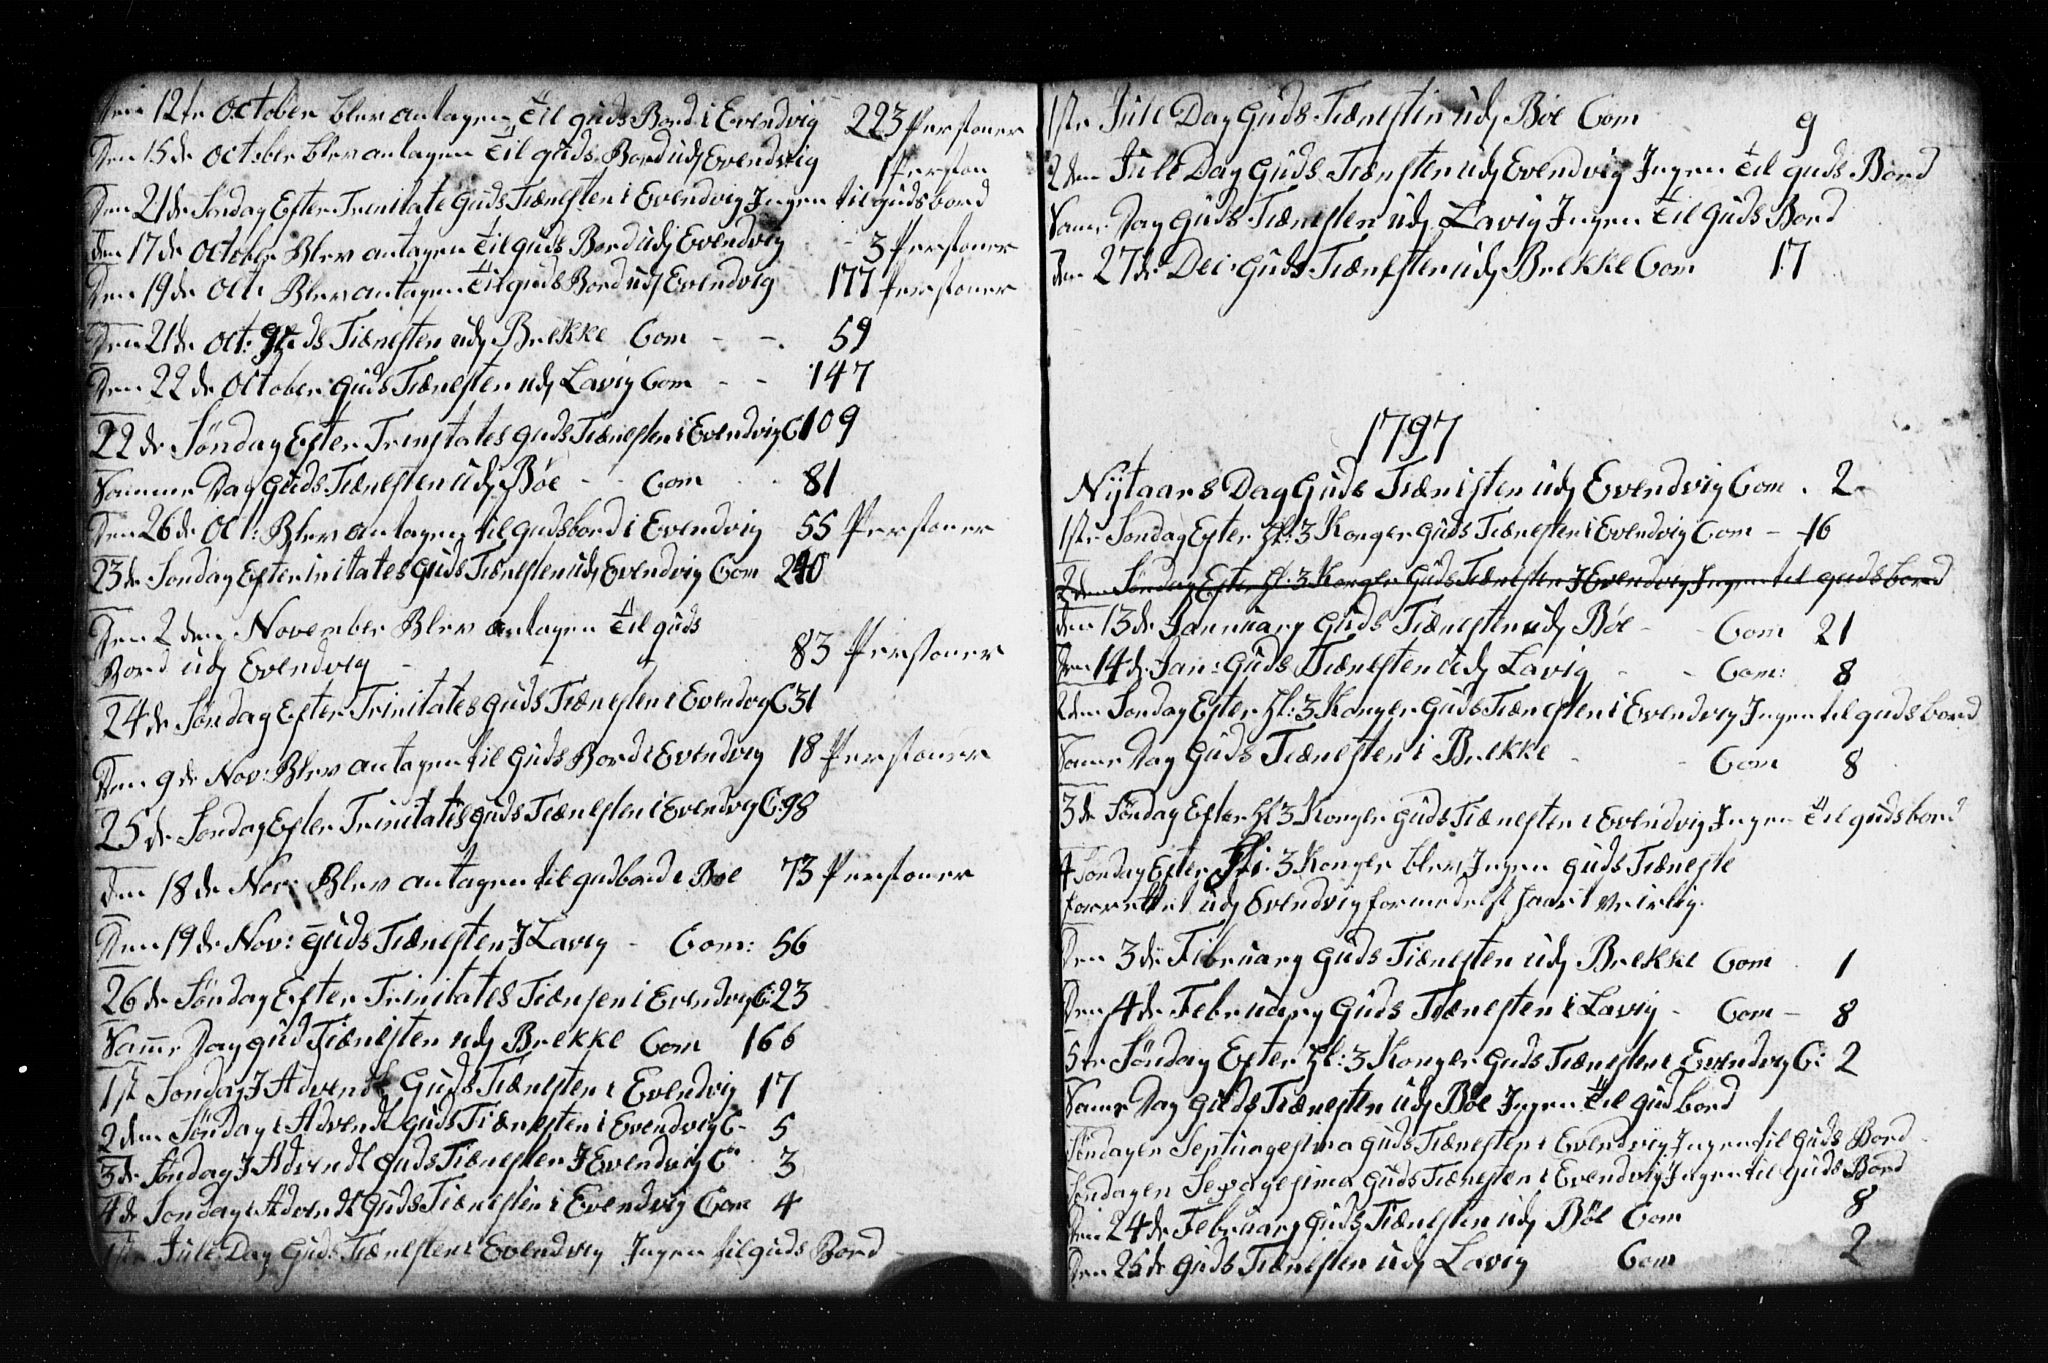 Den 12te October blev antagen til guds Bord i Evendvig 223 Personer
Den 15de October blev antagen til guds Bord udj Evendvig 1 Person
Den 21de Søndag Efter Trenitate Guds Tiænesten i Evendvig Ingen til Gudsbord
den 17de October Blev antagen til guds Bord udj Evendvig - 3 Personer
Den 19de Oct: Blev antagen til guds Bord udj Evendvig 177 Personer
Den 21de Oct: Guds Tiænesten udj Brekke Com - - 59
Den 22de October Guds Tiænesten udj Lavig Com - - 147
22de Søndag Efter Trinitates guds Tiænesten i Evendvig C 109
Samme Dag Guds Tiænesten udj Bøe - - Com - - 81
Den 26de Oct: Blev antagen til gudsbord i Evendvig 55 Personer
23de Søndag Efter initates Guds Tiænesten udj Evendvig Com 240
Den 2den November Blev antagen til guds
Bord udj Evendvig - 83 Personer
24de Søndag Efter Trinitates Guds Tiænesten i Evendvig C 31
Den 9de Nov: Blev antagen til Guds Bord i Evendvig 18 Personer
25de Søndag Efter Trinitates guds Tiænesten i Evendvig C: 98
den 18de Nov: Blev antagen til gudbord i Bøe 73 Personer
Den 19de Nov: Guds Tiænesten J Lavig - Com: 56
26de Søndag Efter Trinitates Tiænsen i Evendvig C: 23
Samr Dag Gud Tiænisten udj Brekke Com 166
1st Søndag J Advendt Guds Tiænesten i Evendvig 17
2den Søndag i Advendt Guds Tiænesten i Evendvig C- 5
3de Søndag J Advendt Guds Tiænesten J Evendvig C: 3
4de Søndag i Advendt Guds Tiænesten i Evendvig Com 4
1ste Jule Dag Guds Tiænesten i Evendvig Ingen til guds Bord
1ste Jule Dag Guds Tiænesten udj Bøe Com 9
2den Jule Dag Guds Tiænesten udj Evendvig Ingen til guds Bord
Samr Dag Guds Tiænesten udj Lavig Ingen til Guds Bord
den 27de Dec: Guds Tiænesten udj Brekke Com 17
1797
Nÿtaars Dag Guds Tiænisten udj Evendvig Com. 2
1ste Søndag Efter Hl: 3 Konger Guds Tiænesten i Evendvig Com - 16
2den Søndag Efter Hl: 3 Konger Guds Tiænesten J Evendvig Ingen til gudsbord
den 13de Januarj Guds Tiænesten udj Bøe - - Com 21
Den 14de Jan: Guds Tiænesten udj Lavig - - Com: 8
2den Søndag Efter Hl: 3 Konger Guds Tiænesten i Evendvig Ingen til gudsbord
Samr Dag Guds Tiænesten i Brekke - - Com 8
3de Søndag Efter Hl 3 Konger Guds Tiænesten i Evendvig Ingen til gudsbord
4 Søndag Efter Hl: 3 Konger blev Ingen guds Tiæneste
forrettet udj Evendvig formedelst haart Veirlig.
Den 3de Februarj Guds Tiænesten udj Brekke Com 1
Den 4de Februarj Guds Tiænesten i Lavig - Com - 8
5te Søndag Efter Hl: 3 Konger Guds Tiænesten i Evendvig C: 2
Samr Dag Guds Tiænesten udj Bøe Ingen til gudbord
Søndagen Septuagesima Guds Tiænesten i Evendvig Ingen til Guds Bord
Søndagen Sexagesima Guds Tiænesten i Evendvig Ingen til Guds Bord
Den 24de Februarj Guds Tiænesten udj Bøe Com 8
Den 25de Guds Tiænesten udj Lavig Com 2